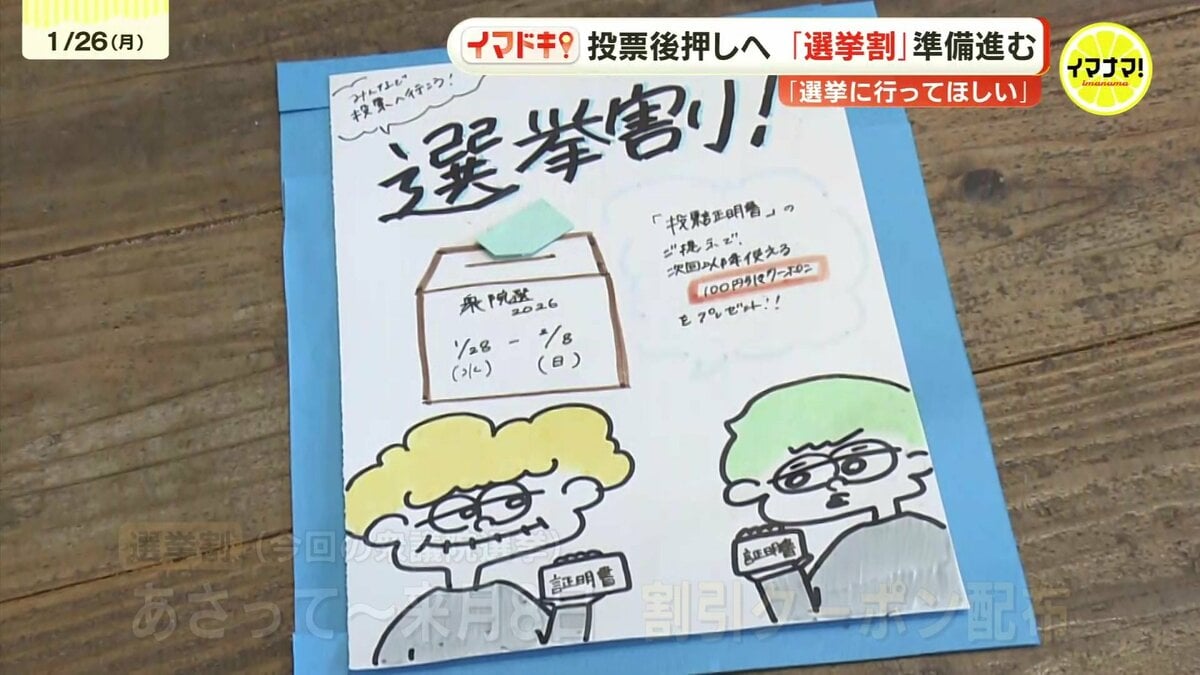 1/26(月)
イマドキ! 投票後押しへ 「選挙割」準備進む
「選挙に行ってほしい」
イマナマ!
imanama
みんなで
投票へ行こう!
選挙割り!
「投票証明書」の
ご提示で、
次回以降使える
100円引きクーポン
をプレゼント!!
衆院選
2026
1/28 - 2/8
(水) (日)
証明書
証明書
選挙割 (今回の衆議院選挙)
あさって~来月8日 割引クーポン配布